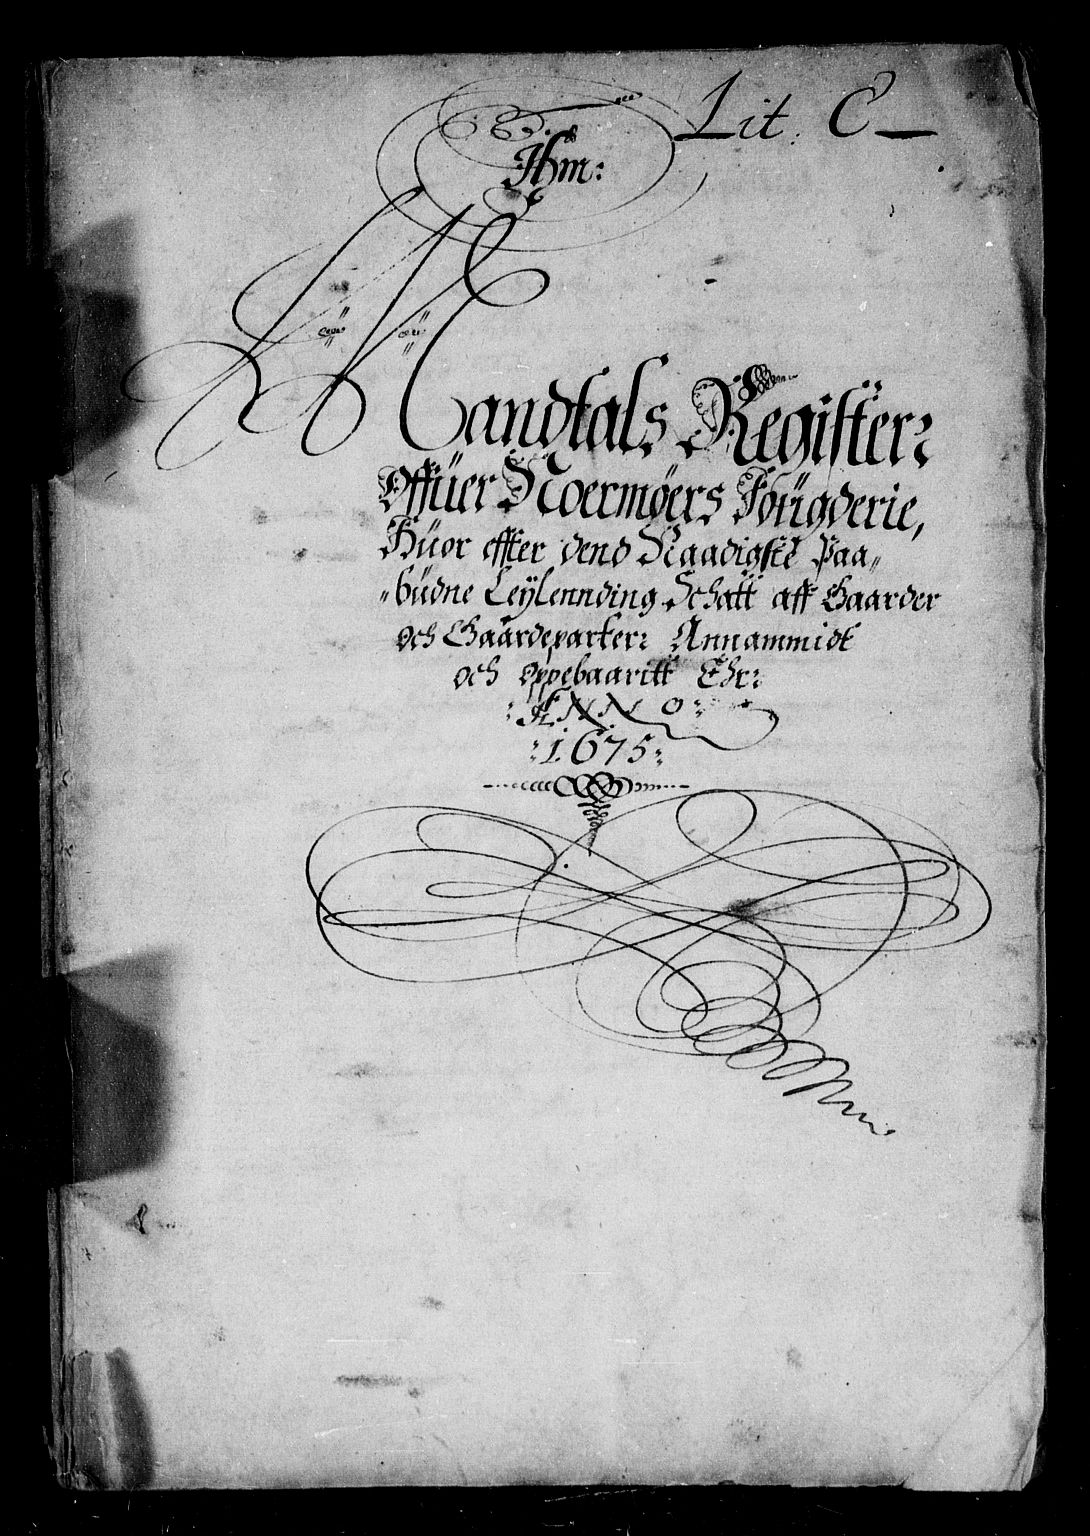 Lit. C
Ihm:
Mandtals Register:
Offüer Noermøers Fougderie,
Hüor effter dend Naadigste Paa„
„büdne Leylennding Schatt aff Gaarder
och Gaardeparter: Annammidt
och oppebaaritt Ehr:
:ANNO:
:1675: